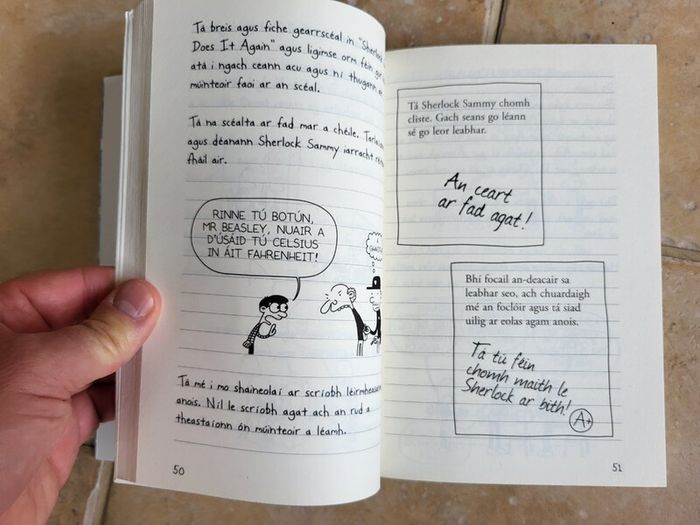 Tá breis agus fiche gearrscéal in "Sherlock
Does It Again" agus ligimse orm féin gur
atá i ngach ceann acu agus ní thugann an
múinteoir faoi ar an scéal.
Tá na scéalta ar fad mar a chéile.
agus déanann Sherlock Sammy iarracht
fháil air.
RINNE TÚ BOTÚN,
MR BEASLEY, NUAIR A
D'ÚSÁID TÚ CELSIUS
IN ÁIT FAHRENHEIT!
Tá mé i mo shaineolaí ar scríobh
anois. Níl le scríobh agat ach an rud a
theastaíonn ón múinteoir a léamh.
50
Tá Sherlock Sammy chomh
cliste. Gach seans go léann
sé go leor leabhar.
An ceart
ar fad agat!
Bhí focail an-deacair sa
leabhar seo, ach chuardaigh
mé an foclóir agus tá siad
uilig ar eolas agam anois.
Tá tú féin
chomh maith le
Sherlock ar bith!
A+
51